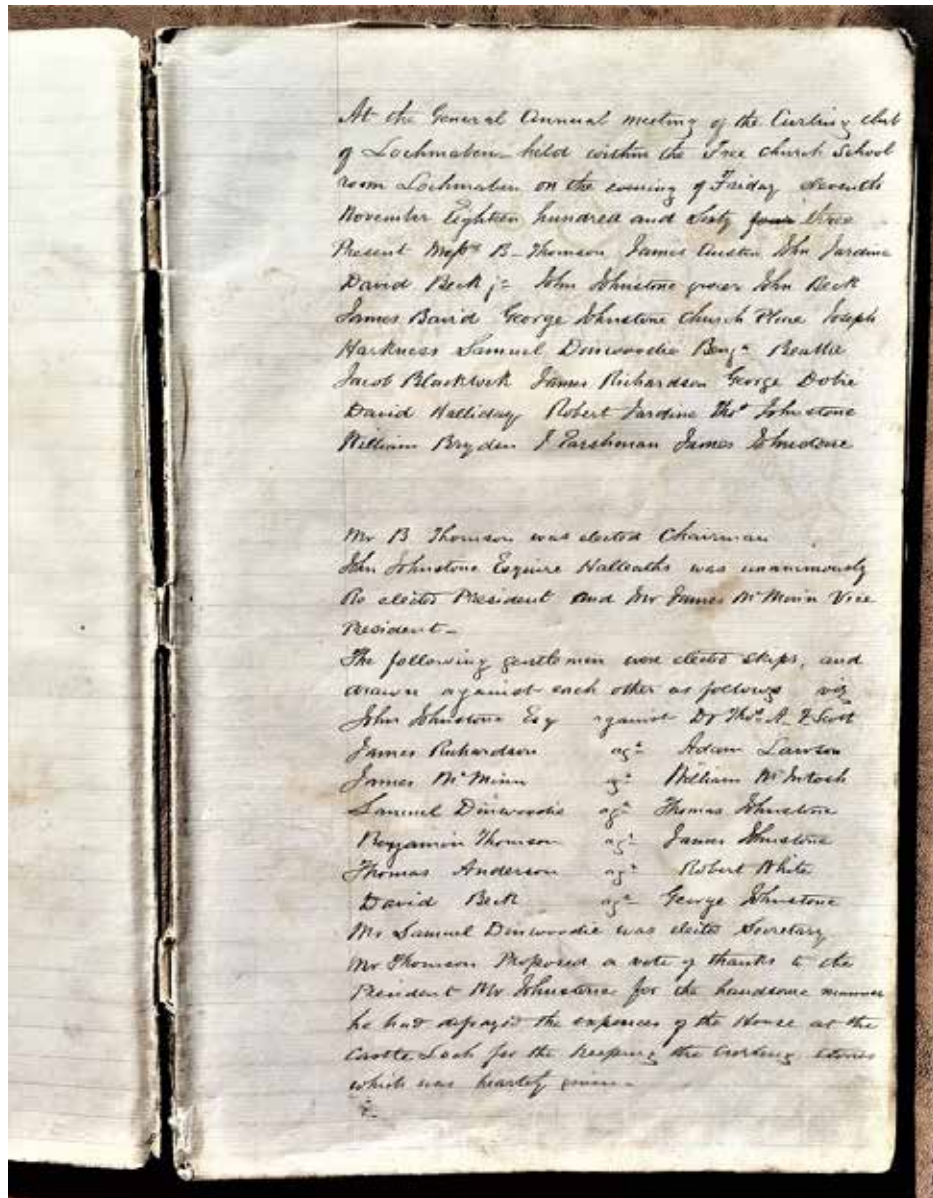 At the General Annual meeting of the Curling club
of Lochmaben held within the Free church School
room Lochmaben on the evening of Friday
November Eighteen hundred and Sixty four three
Present Messrs B. Thomson James Austin John Jardine
David Beck jr John Johnstone grocer John Beck
James Baird George Johnstone Church Place Joseph
Harkness Samuel Dinwoodie Benjn Beattie
Jacob Blacklock James Richardson George Dobie
David Halliday Robert Jardine Thos Johnstone
William Bryden J Carshman James Johnstone
Mr B Thomson was elected Chairman
John Johnstone Esquire Halleaths was unanimously
Re elected President and Mr James McMinn Vice
President –
The following gentlemen were elected skips, and
drawn against each other as follows viz
John Johnstone Esq against Dr Thos A. F Scott
James Richardson agt Adam Lawson
James McMinn agt William McIntosh
Samuel Dinwoodie agt Thomas Johnstone
Benjamin Thomson agt James Johnstone
Thomas Anderson agt Robert White
David Beck agt George Johnstone
Mr Samuel Dinwoodie was elected Secretary
Mr Thomson Proposed a vote of thanks to the
President Mr Johnstone for the handsome manner
he had defrayed the expences of the House at the
Castle Loch for the keeping the Curling stones
which was heartily given –